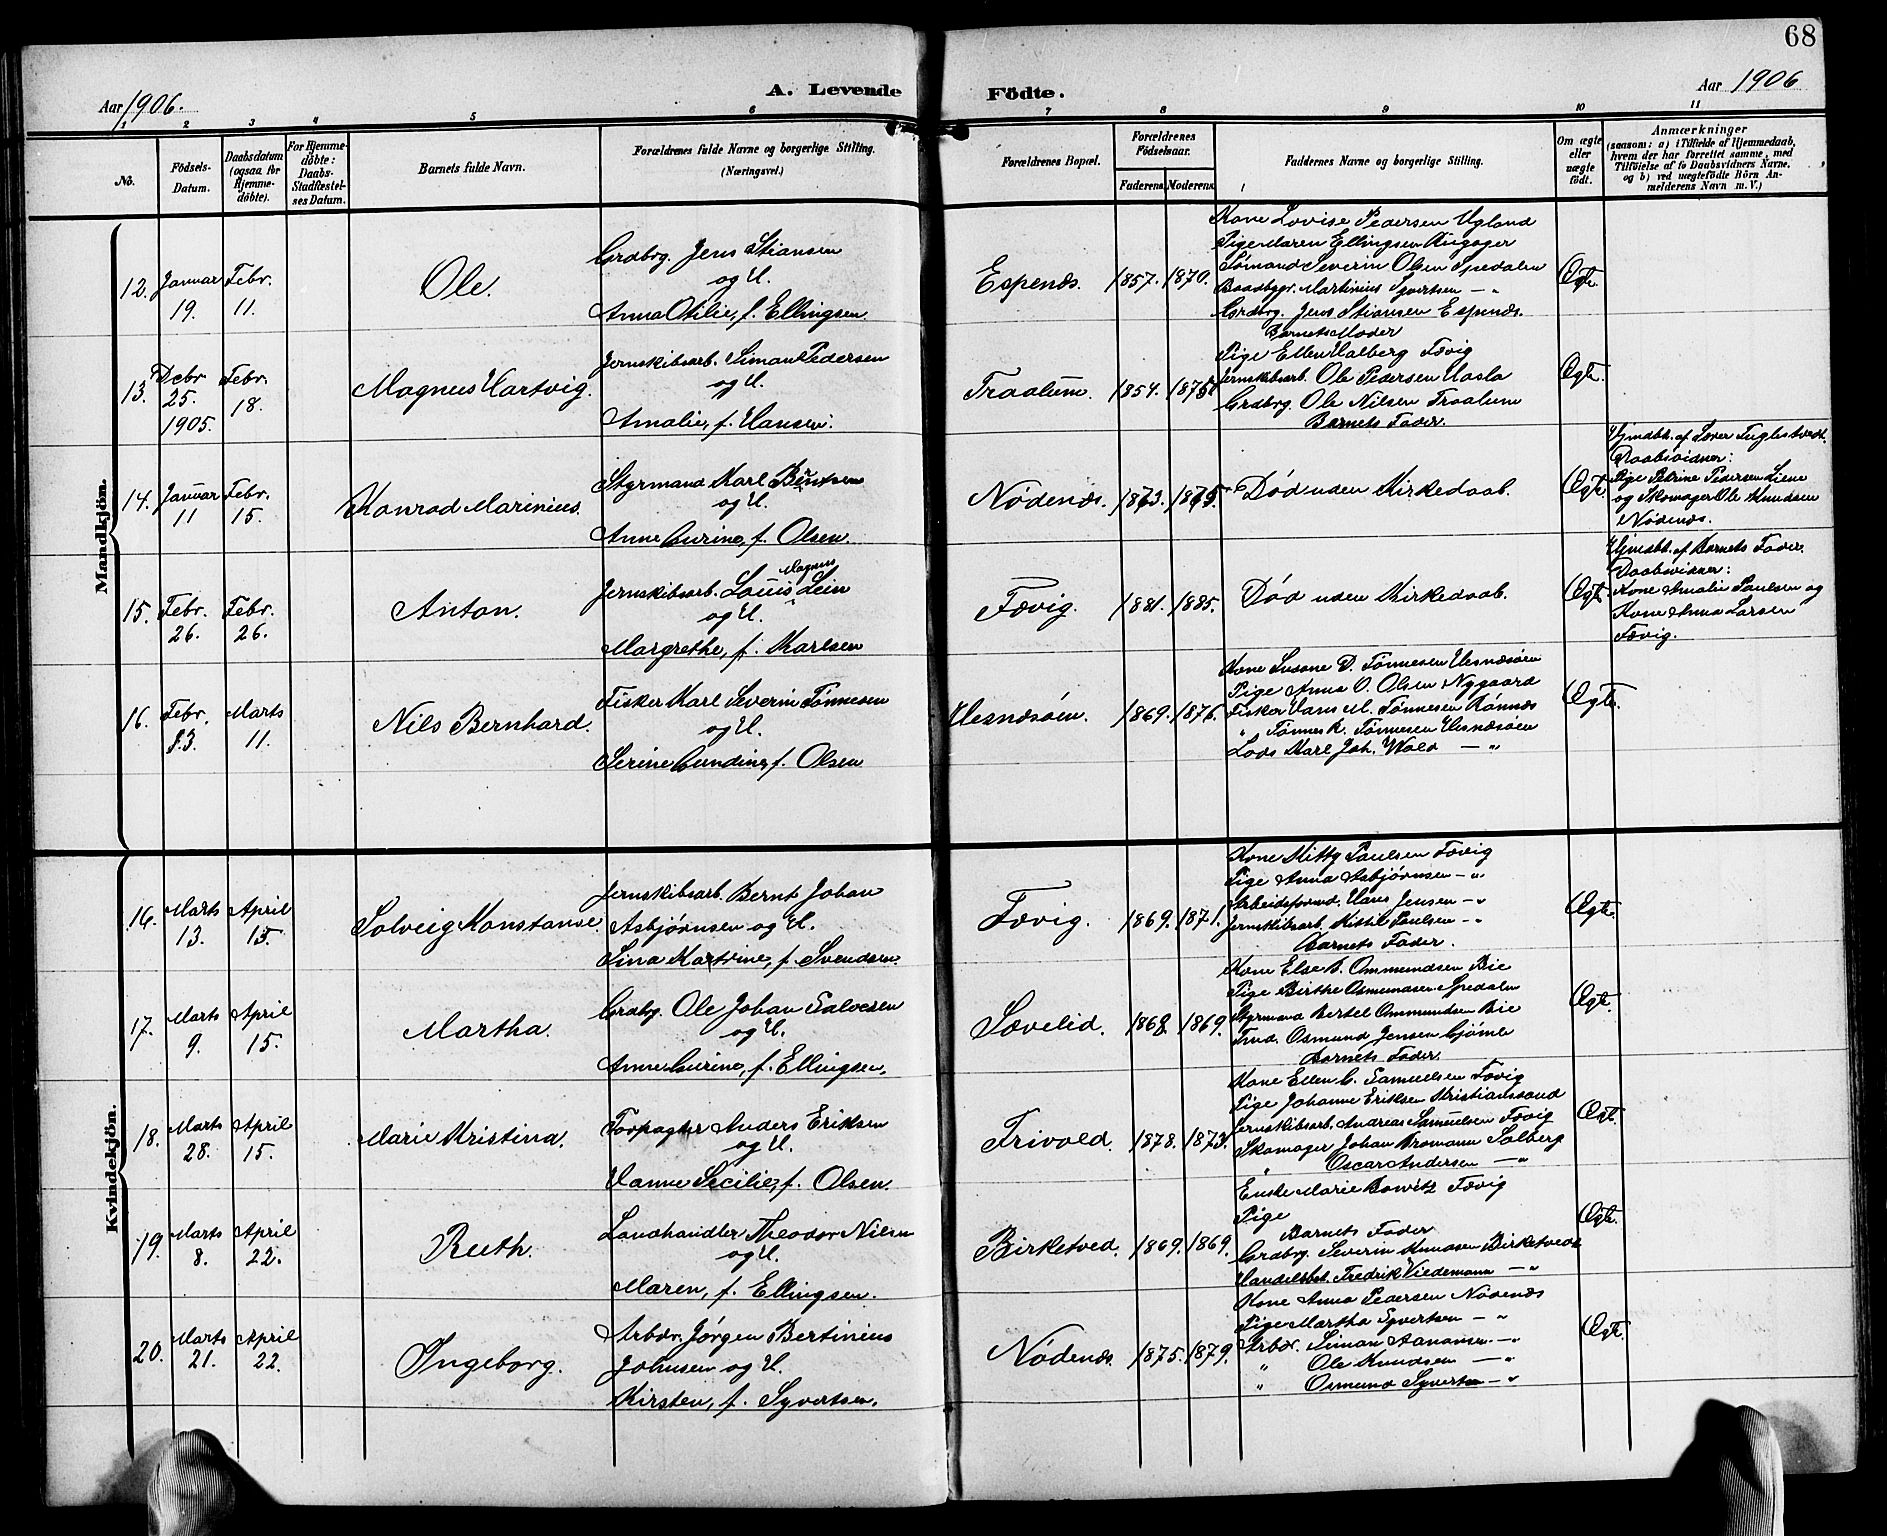 68
Aar 1906.
A. Levende Födte.
Aar 1906
1 2 3 4 5 6 7 8 9 10 11
No.
Födsels-Datum.
Daabsdatum (ogsaa for Hjemme-døbte).
For Hjemme-døbte: Daabs-Stadfæstel-ses Datum.
Barnets fulde Navn.
Forældrenes fulde Navne og borgerlige Stilling. (Næringsvei.)
Forældrenes Bopæl.
Forældrenes Födselsaar.
Faderens. Moderens.
Faddernes Navne og borgerlige Stilling.
Om ægte eller uægte født.
Anmærkninger
(saasom: a) i Tilfælde af Hjemmedaab, hvem der har forrettet samme, med Tilföielse af to Daabsvidners Navne, og b) ved uægtefödte Börn An-melderens Navn m. V.)
Mandkjön.
12. Januar 19. Febr. 11.
Ole.
Grdbrg. Jens Stiansen
og H.
Anna Otilie, f. Ellingsen.
Espenæs. 1857. 1870.
Kone Lovise Pedersen Ugland
Pige Maren Ellingsen
Sømand Severin Olsen Spedalen
Baadbygr. Martinius Syvertsen — "
Grdbrg. Jens Stiansen Espenæs.
Barnets Moder
Ægte.
13. Debr. 25. 1905. Febr. 18.
Magnus Hartvig.
Jernskibsarb. Simon Pedersen
og H.
Amalie, f. Hansen.
Traalum. 1854.
Pige Ellen Halberg Fævig
Jernskibsarb. Ole Pedersen Hasla
Grdbrg. Ole Nilsen Traalum
Barnets Fader.
Ægte.
14. Januar 11 Febr. 15.
Konrad Marinius.
Styrmand Karl Berntsen
og H.
Anne Gurine, f. Olsen.
Nødenæs. 1873. 1875.
Død uden Kirkedaab.
Ægte.
Hjmdbt. af Lærer Fuglestvedt.
Daabsvidner:
Pige Petrine Pedersen Liene
og Skomager Ole Knudsen
Nødenæs.
15. Febr. 26. Febr. 26.
Anton.
Magnus
Jernskibsarb. Louis Lein
og H.
Margrethe, f. Karlsen
Fævig. 1881. 1885.
Død uden Kirkedaab.
Ægte
Hjmdbt. af Barnets Fader.
Daabsvidner:
Kone Amalie Paulsen og
Kone Anna Larsen
Fævig.
16. Febr. Marts 11.
Nils Bernhard.
Fisker Karl Severin Tønnesen
og H.
Serine Gundine, f. Olsen
Hesnæsøen. 1869. 1876.
Kone Susane D. Tønnesen Hesnæsøen
Pige Anna O. Olsen Nygaard
Fisker Hans M. Tønnesen Rønnæs
" Tønnes K. Tønnesen Hesnæsøen
Lods Karl Joh. Wold — "
Ægte.
Kvindekjön.
16. Marts 13. April 15.
Solveig Konstanse.
Jernskibsarb. Bernt Johan
Asbjørnsen og H.
Lina Katrine, f. Svendsen.
Fævig. 1869. 1871.
Kone Kitty Paulsen Fævig
Pige Anna Asbjørnsen — "
Arbeidsformd. Hans Jensen — "
Jernskibsarb. Kittil Paulsen — "
Barnets Fader.
Ægte.
17. Marts 9. April 15.
Martha.
Grdbrg. Ole Johan Salvesen
og H.
Anne Gurine, f. Ellingsen.
Sævelid. 1868. 1869.
Kone Else B. Ommundsen Bie
Pige Birthe Osmundsen Spedalen
Styrmand Bertel Ommundsen Bie
Osmund Jensen Gjømle
Barnets Fader.
Ægte.
18. Marts 28. April 15.
Marie Kristina.
Forpagter Anders Eriksen
og H.
Hanne Secilie, f. Olsen.
Frivold. 1878. 1873.
Kone Ellen C. Samuelsen Fævig
Pige Johanne Eriksen Kristianssand
Jernskibsarb. Andreas Samuelsen Fævig
Skomager Johan Bromann Solberg
" Oscar Andersen — "
Ægte.
19. Marts 8. April 22.
Ruth.
Landhandler Theodor Nilsen
og H.
Maren, f. Ellingsen.
Birketved. 1869. 1869.
Enke Marie Bowitz Fævig
Pige
Barnets Fader
Grdbrg. Severin Knudsen Birketvedt
Handelsbet. Fredrik Wiedemann — "
Ægte.
20. Marts 21. April 22.
Ingeborg.
Arbdr. Jørgen Bertinius
Johnsen og H.
Kirsten, f. Syvertsen.
Nødenæs. 1875. 1879.
Kone Anna Pedersen Nødenæs
Pige Martha Syvertsen — "
Arbdr. Simon Aanonsen — "
" Ole Knudsen — "
" Osmund Syvertsen — "
Ægte.